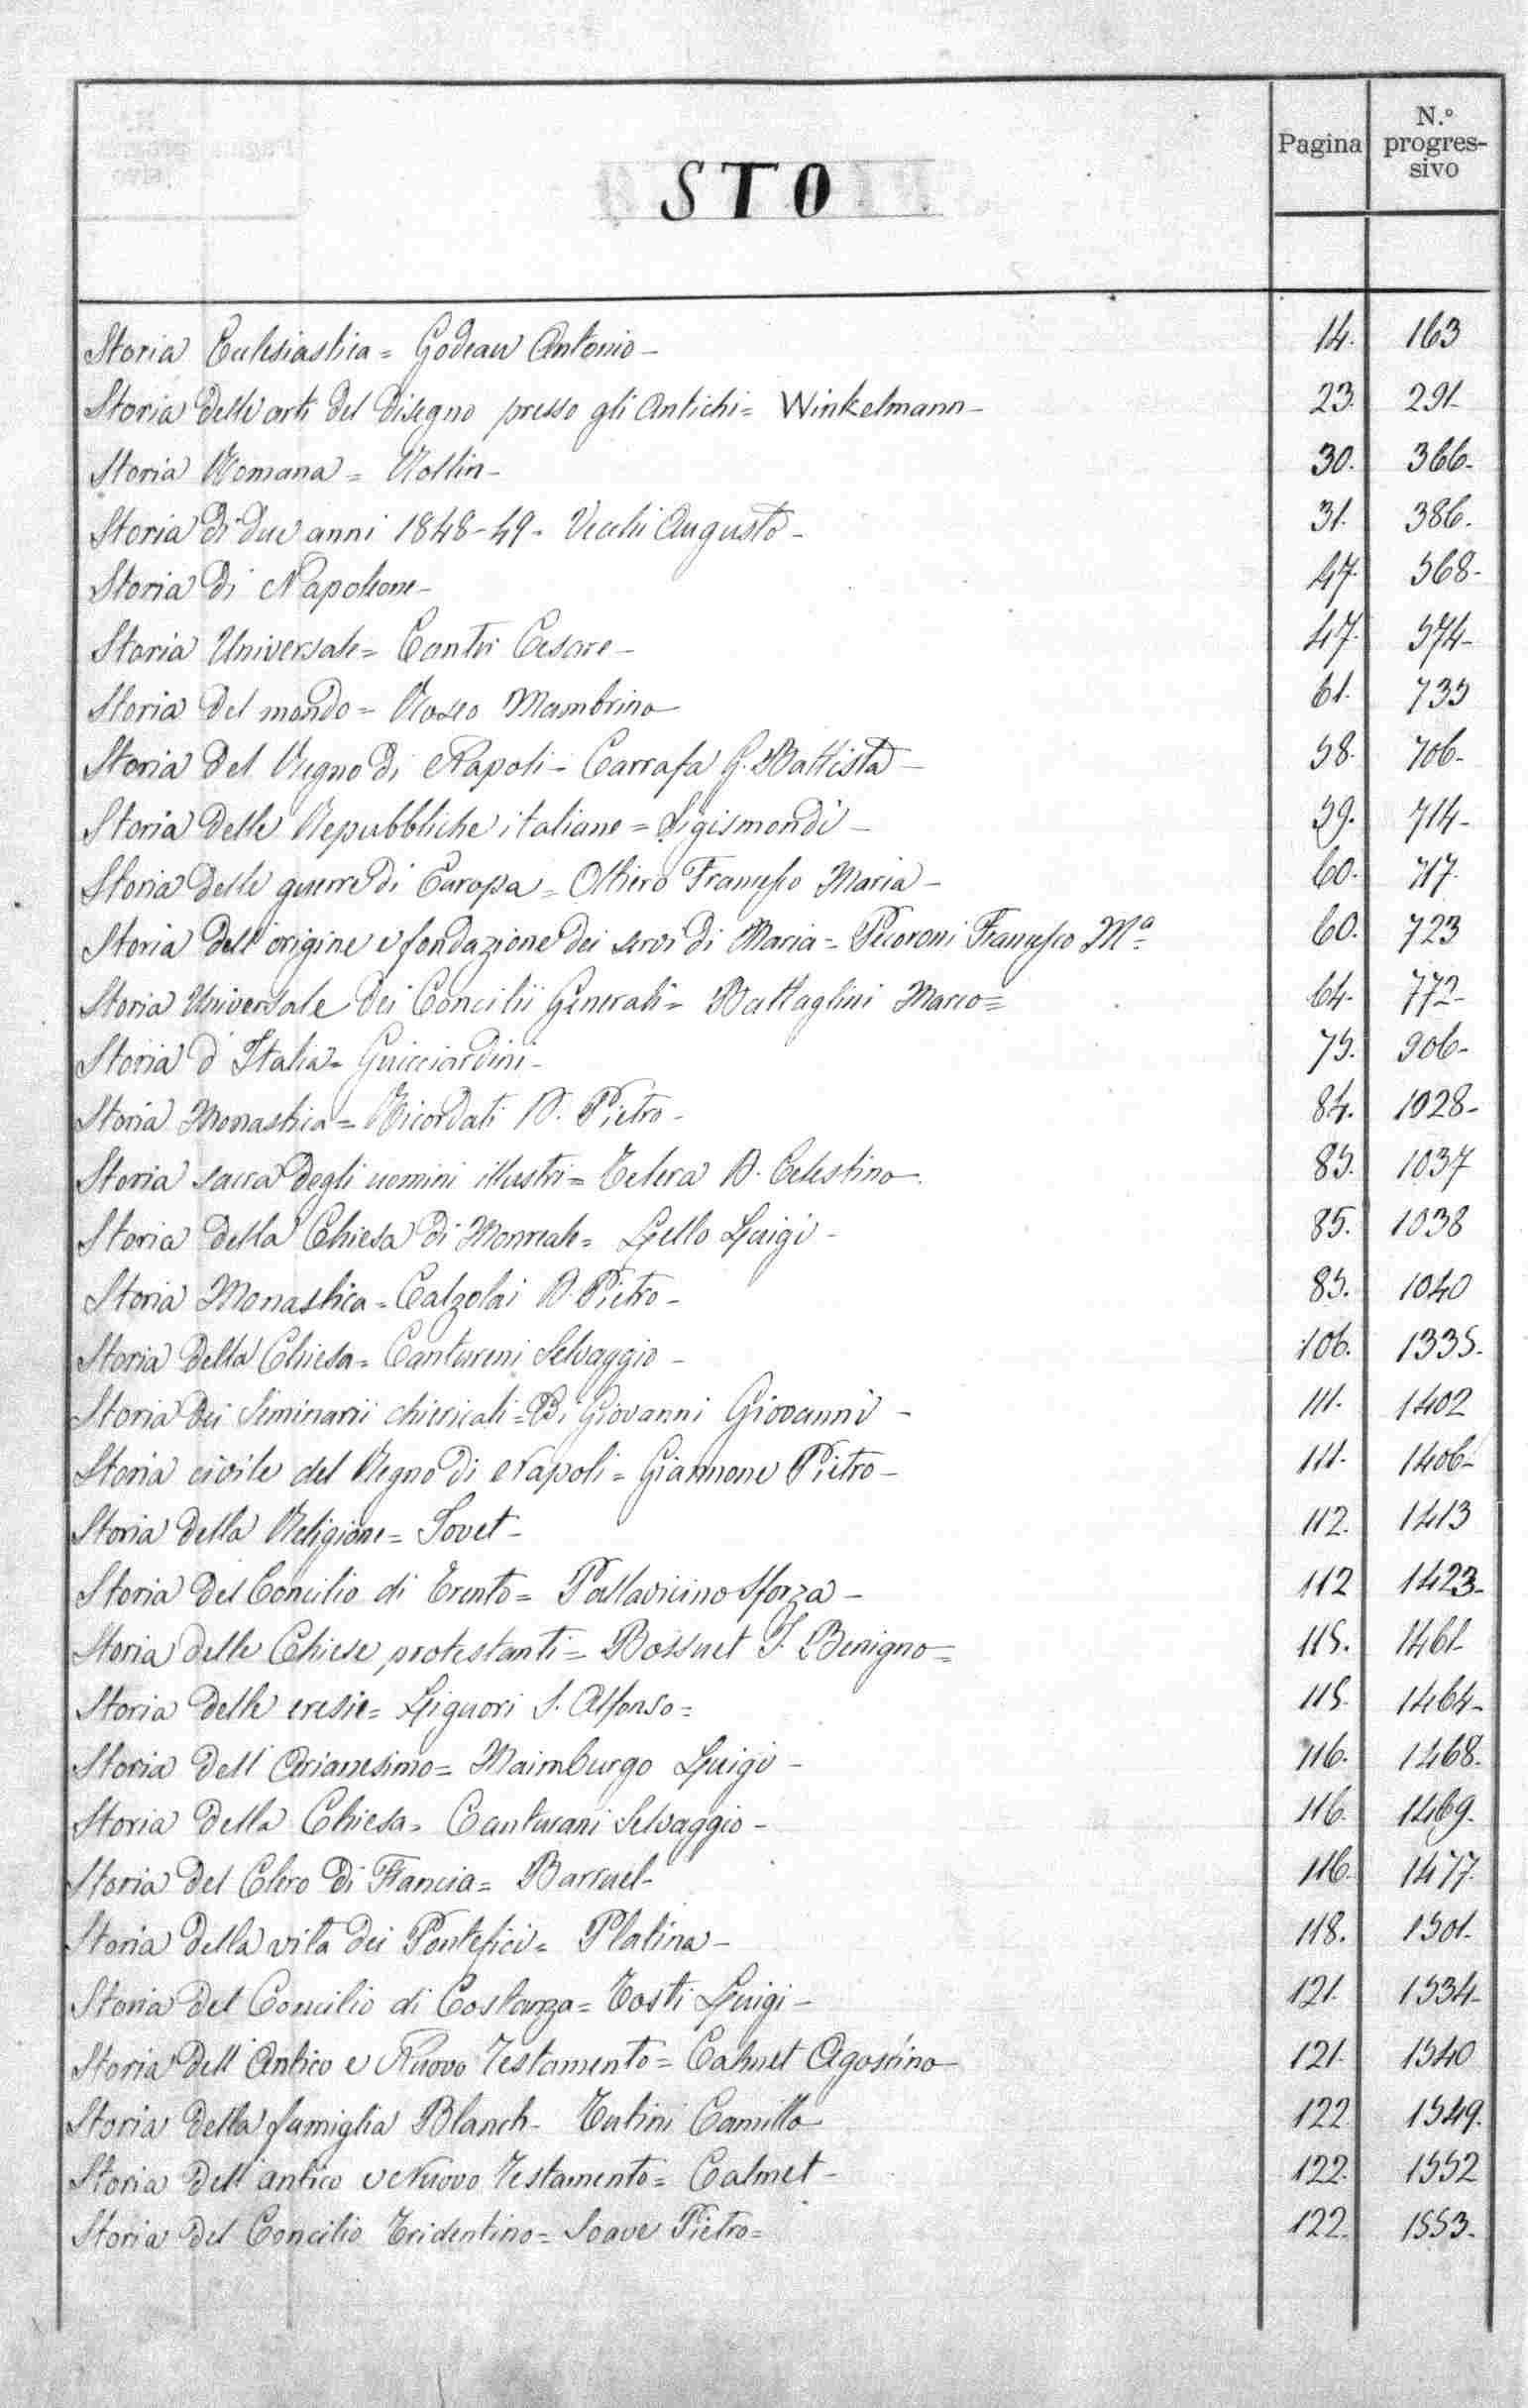 Pagina
N.º progres-
sivo
STO
Storia Ecclesiastica = Godeau Antonio - 14. 163
Storia delle arti del disegno presso gli Antichi = Winkelmann - 23. 291-
Storia Romana = Rollin - 30. 366-
Storia di due anni 1848-49 - Vecchi Augusto - 31. 386.
Storia di Napoleone - 47. 568-
Storia Universale = Cantù Cesare - 47. 574-
Storia del mondo = Roseo Mambrino 61. 735
Storia del Regno di Napoli - Carrafa G. Battista - 58. 706-
Storia delle Repubbliche italiane = Sigismondi - 59. 714-
Storia delle guerre di Europa = Othiero Francesco Maria - 60. 717.
Storia dell'origine e fondazione dei servi di Maria = Pecoroni Francesco Mª 60. 723
Storia Universale dei Concilii Generali = Battaglini Marco = 64. 772-
Storia d'Italia = Guicciardini - 75. 906-
Storia Monastica = Ricordati D. Pietro - 84. 1028-
Storia sacra degli uomini illustri = Telera D. Celestino 85. 1037
Storia della Chiesa di Monreale = Lello Luigi - 85. 1038
Storia Monastica = Calzolai D. Pietro - 85. 1040
Storia della Chiesa = Cantureni Selvaggio - 106. 1335.
Storia dei Seminarii chiericali = Di Giovanni Giovanni - 111. 1402
Storia civile del Regno di Napoli = Giannone Pietro - 111. 1406-
Storia della Religione = Jovet - 112. 1413
Storia del Concilio di Trento = Pallavicino Sforza - 112 1423-
Storia delle Chiese protestanti = Bossuet J. Benigno = 115. 1461-
Storia delle eresie = Liguori S. Alfonso = 115. 1464-
Storia dell'Arianesimo = Maimburgo Luigi - 116. 1468.
Storia della Chiesa = Canturani Selvaggio - 116. 1469.
Storia del Clero di Francia = Barruel - 116. 1477.
Storia della vita dei Pontefici = Platina - 118. 1501.
Storia del Concilio di Costanza = Tosti Luigi - 121. 1534-
Storia dell'Antico e Nuovo Testamento = Calmet Agostino 121. 1540
Storia della famiglia Blanch - Tutini Camillo 122. 1549.
Storia dell'antico e Nuovo Testamento = Calmet - 122. 1552
Storia del Concilio Tridentino = Soave Pietro = 122. 1553.